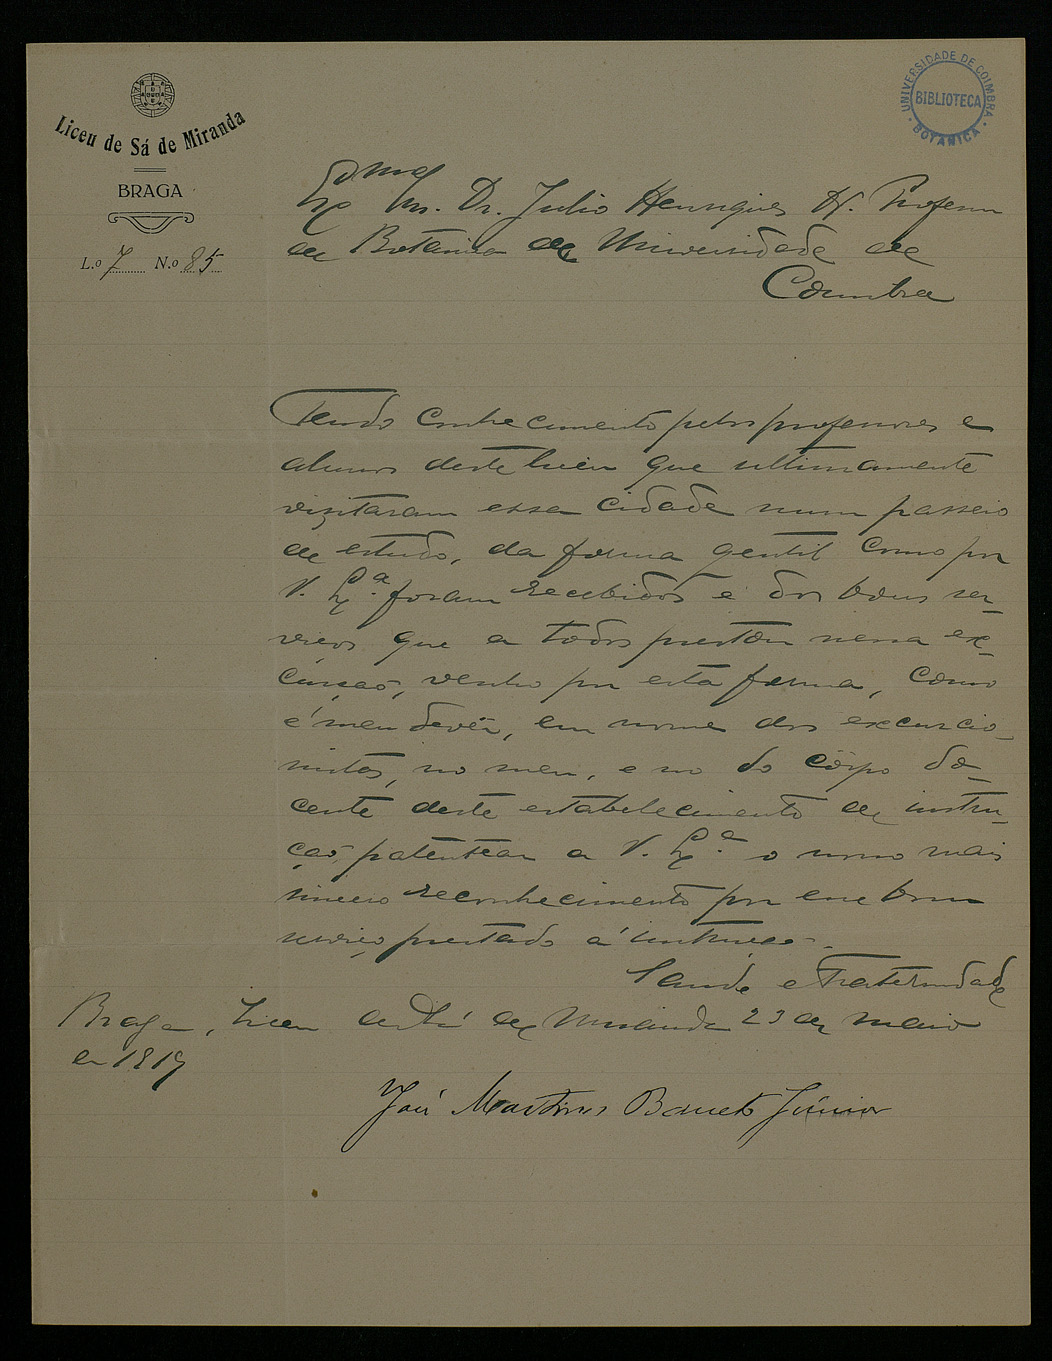 Liceu de Sá de Miranda
BRAGA
L.o 7 N.o 85
UNIVERSIDADE DE COIMBRA
BIBLIOTECA
BOTANICA
Exmo Snr. Dr. Julio Henriques D. Professor
de Botanica da Universidade de
Coimbra
Tendo conhecimento pelos professores e
alunos deste liceu que ultimamente
vizitaram essa cidade num passeio
de estudo, da forma gentil como por
V. Ex.ª foram recebidos e dos bons ser-
viços que a todos prestou nessa ex-
cursão, venho por esta forma, como
é meu devêr, em nome dos excurcio-
nistas, no meu, e no do côrpo do-
cente deste estabelecimento de instru-
ção, patentear a V. Ex.ª o nosso mais
sincero reconhecimento por esse bom
serviço prestado á instrução.
Saude e Fraternidade
Braga, Liceu de Sá de Miranda 23 de maio
de 1919
José Martins Barreto Júnior